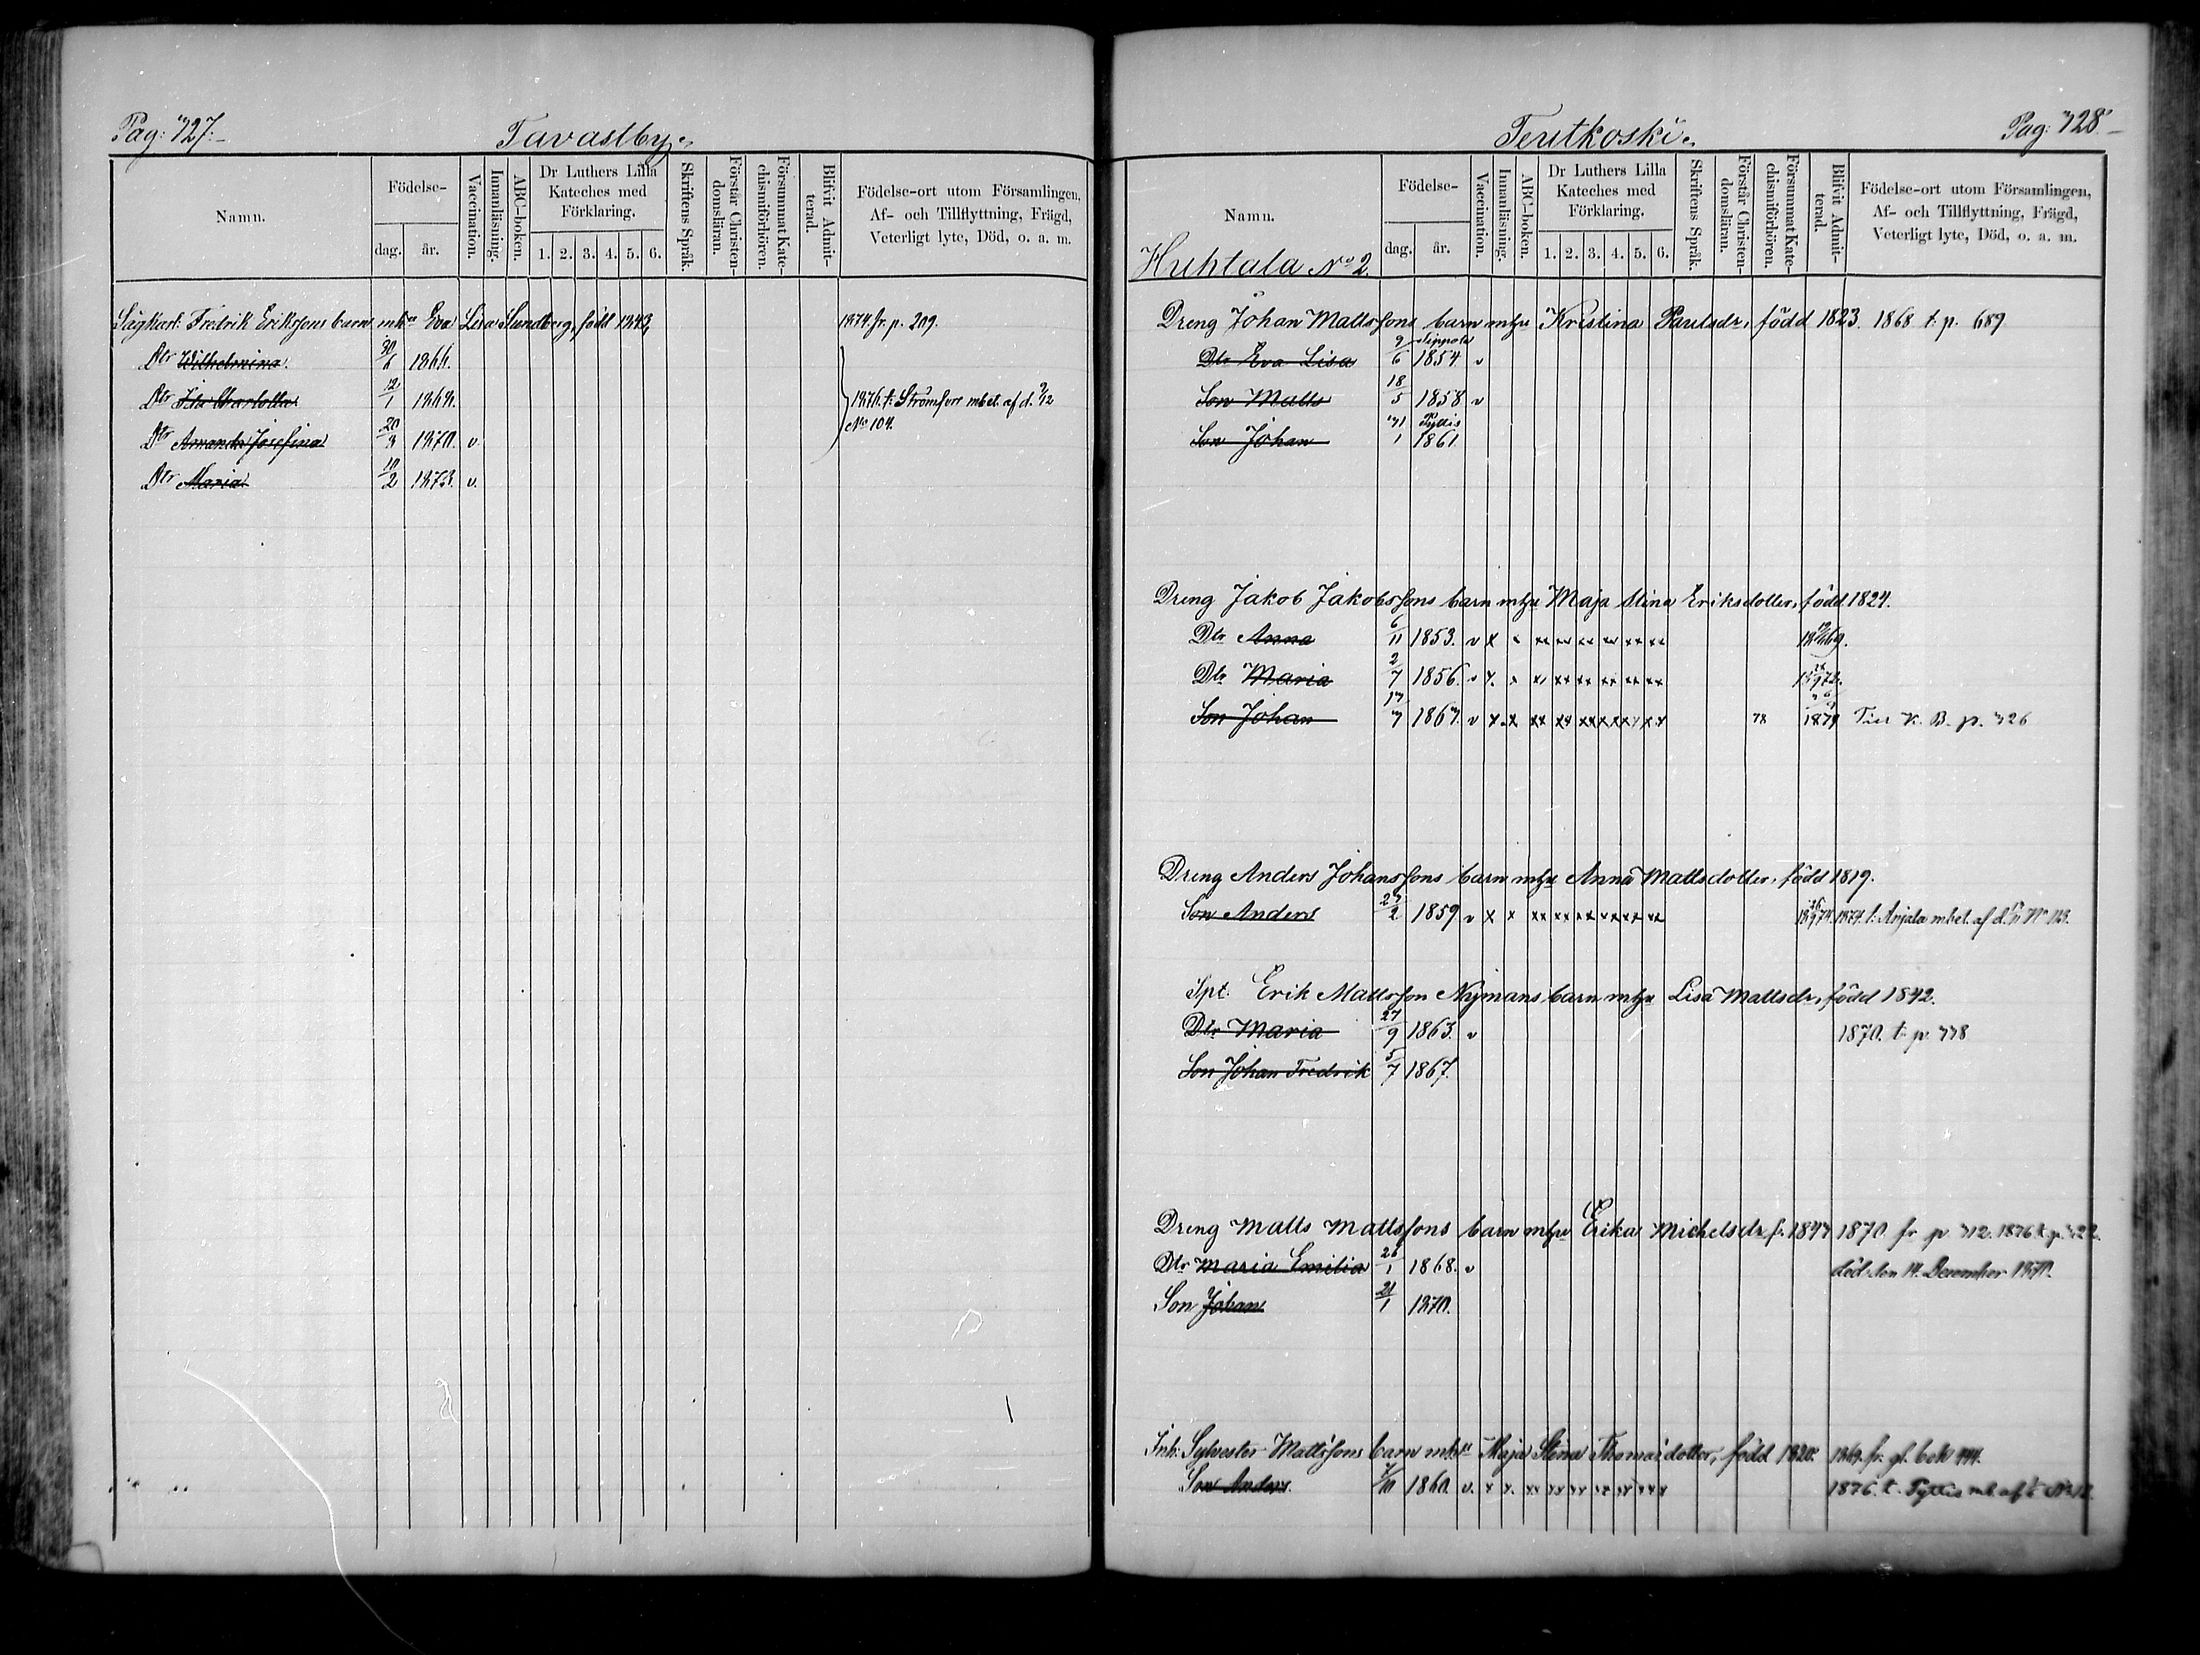 Pag: 727.
Tavastby.
Namn.
Födelse-
dag. år.
Vaccination.
Innanläsning.
ABC-boken.
Dr Luthers Lilla Kateches med Förklaring.
1. 2. 3. 4. 5. 6.
Skriftens Språk.
Förstår Christendomsläran.
Försummat Katechismiförhören.
Blifvit Admitterad.
Födelse-ort utom Församlingen, Af- och Tillflyttning, Frägd, Veterligt lyte, Död, o. a. m.
Fredrik Erikssons barn mhu Eva Lisa Sundberg, född 1843, 1874 fr. p. 209.
Dtr Wilhelmina 30/6 1866.
Dtr Charlotta 12/1 1868. 1876. t. Strömfors mbet. af d. 9/12
Dtr Amanda Josefina 20/3 1870. v No 104.
Dtr Maria 10/2 1873. v.
Pag: 728
Teutkoski.
Namn.
Huhtala No 2.
Födelse-
dag. år.
Vaccination.
Innanläsning.
ABC-boken.
Dr Luthers Lilla Kateches med Förklaring.
1. 2. 3. 4. 5. 6.
Skriftens Språk.
Förstår Christendomsläran.
Försummat Katechismiförhören.
Blifvit Admitterad.
Födelse-ort utom Församlingen, Af- och Tillflyttning, Frägd, Veterligt lyte, Död, o. a. m.
Dreng Johan Mattssons barn mhu Kristina Paulsdr, född 1823. 1868 t. p. 689
Dtr Eva Lisa 9/6 Sippola 1854. v
Son Matts 18/5 1858 v
Son Johan 1 Pyttis 1861
Dreng Jakob Jakobssons barn mhu Maja Stina Eriksdotter, född 1824.
Dtr Anna 6/11 1853. v x x xx xx xx xx xx xx 1869.
Dtr Maria 2/7 1856. v x x xx xx xx xx xx xx 1872.
Son Johan 17/7 1861. v x x xx xx xx xx xx xx 78 1879 K. B. p. 726
Dreng Anders Johanssons barn mhu Anna Mattsdotter, född 1819.
Son Anders 27/2 1859 v x x xx xx xx xx xx xx 1874. 1874 t. Anjala mbet. af d. No 113.
Spt. Erik Mattsson Nymans barn mhu Lisa Mattsdr, född 1842.
Dtr Maria 27/9 1863. v 1870. t. p. 778
Son Johan Fredrik 5/7 1867.
Dreng Matts Mattssons barn mhu Erika Michelsdr f. 1847 1870 fr p 712. 1876 t. p. 722.
Dtr Maria Emilia 26/1 1868. v död den 14 December 1870.
Son Johan 21/1 1870.
Inh: Sylvester Mattssons barn mhu Maja Stina Thomasdotter, född 1820. 1869. fr. gl. bok 444.
Son Anders 7/10 1860. v. x x. xx xx xx xx xx xx 1876. t. Pyttis mb. af No 12.